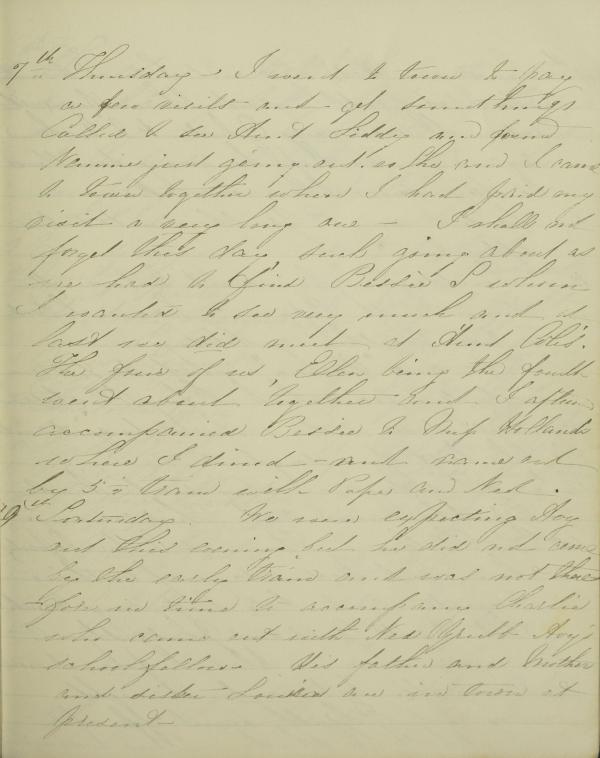 7th Thursday - I went to town to pay
a few visits and get some things
Called to see Aunt Liddy and found
Nannie just going out. so she and I came
to town together when I had paid my
visit a very long one - I shall not
forget this day such going about as
we had to find Bessie L whom
I wanted to see very much and at
last we did meet at Aunt
The four of us, Ellen being the fourth
went about together and I after
accompanied Bessie to Miss Hollands
where I dined - and came out
by 5 o train with Papa and Ned.
9th Saturday. We were expecting Hoy
out this evening but he did not come
by the early train and was not there
fore in time to accompany Charlie
who came out with Ned Grubb Hoy's
schoolfellow. His father and mother
and sister Louisa are in town at
present -